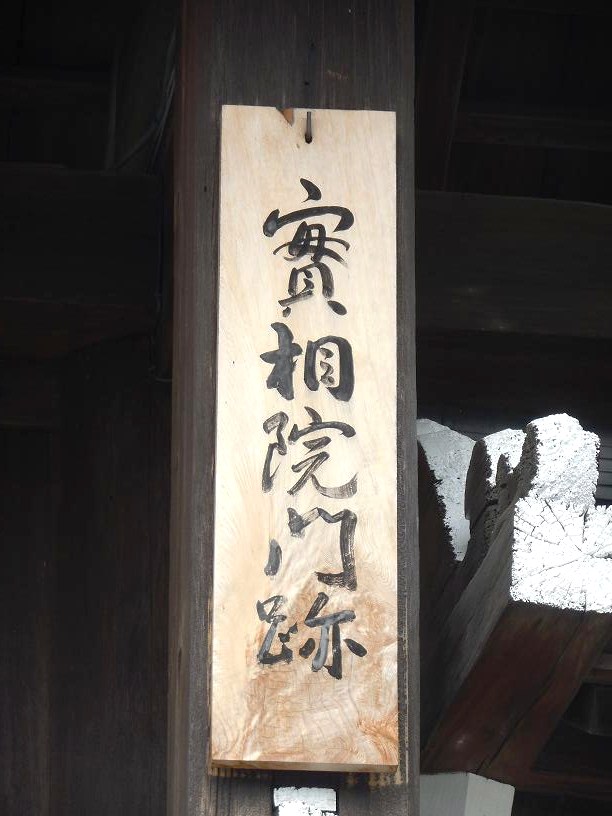 實相院門跡